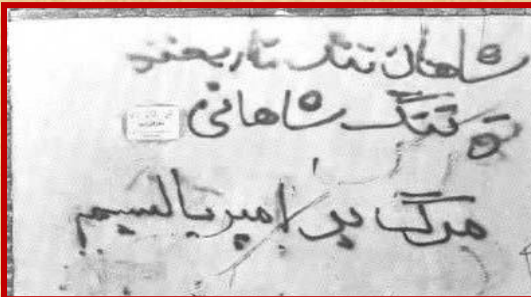 شاهان ننگ تاریخند
تو ننگ شاهانی
مرگ بر امپریالسیم